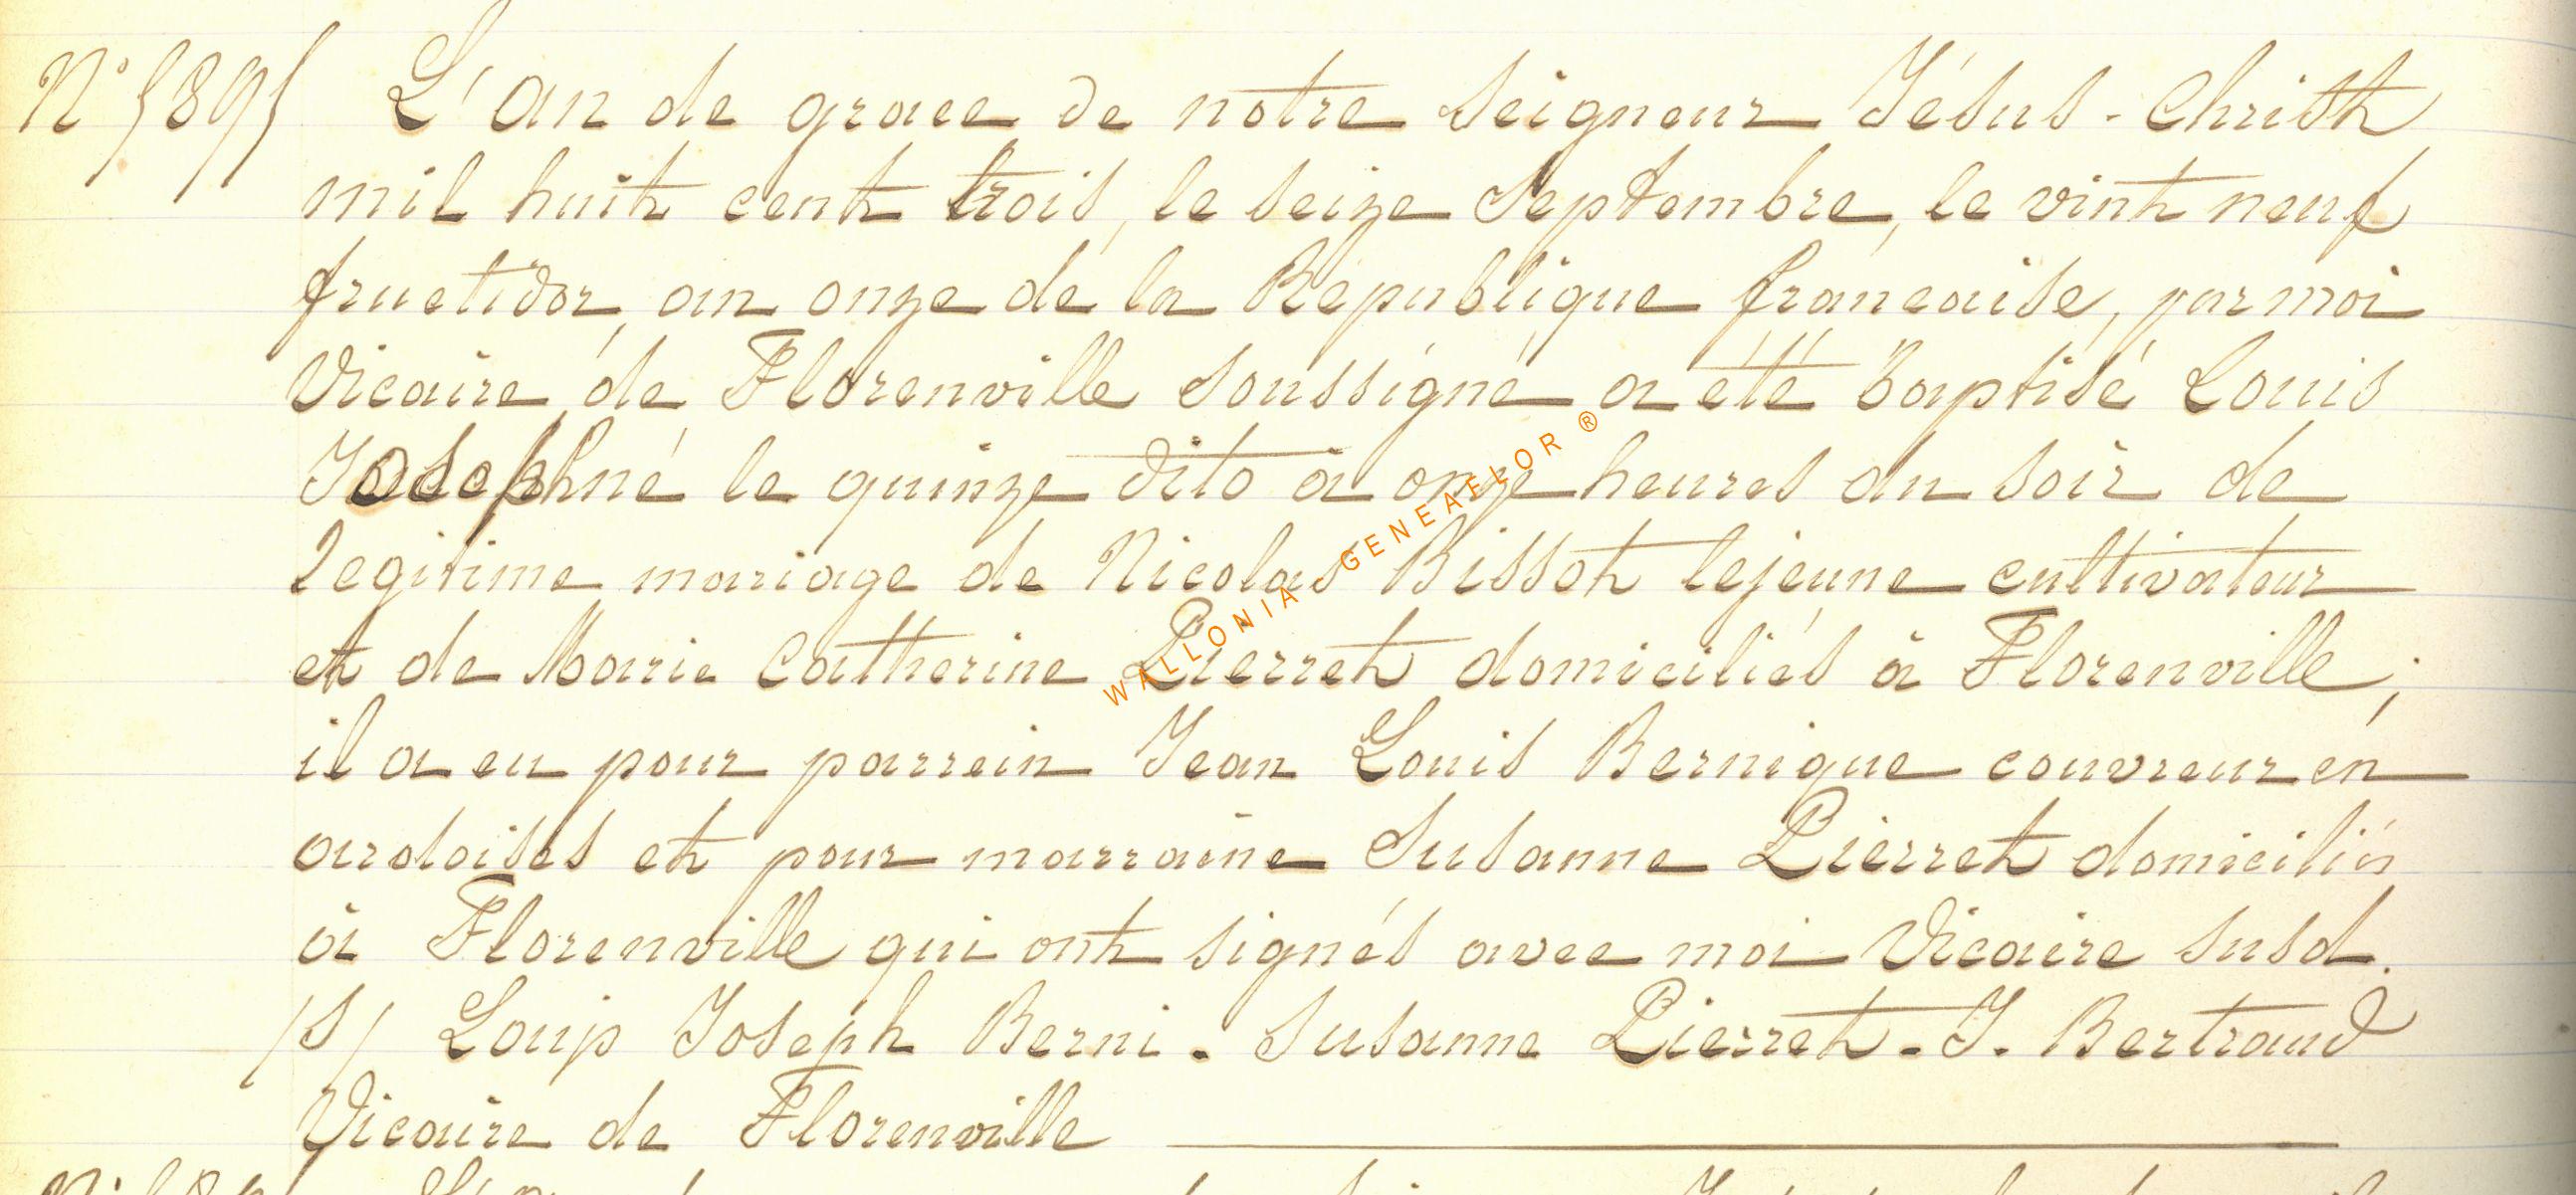 N° 5895 L'an de grace de notre Seigneur Jésus-Christ
mil huit cent trois, le seize Septembre, le vint neuf
fructidor, an onze de la République francaise, par moi
Vicaire de Florenville soussigné a été baptisé Louis
Joseph né le quinze dito à onze heures du soir de
legitime mariage de Nicolas Bissot lejeune cultivateur
et de Marie Catherine Pierret domiciliés à Florenville,
il a eu pour parrein Jean Louis Bernique couvreur en
ardoises et pour marraine Susanne Pierret domiciliés
à Florenville qui ont signés avec moi Vicaire susd.
/S/ Loup Joseph Berni. Susanne Pierret. J. Bertrand
Vicaire de Florenville
WALLONIA GENEAFLOR ®